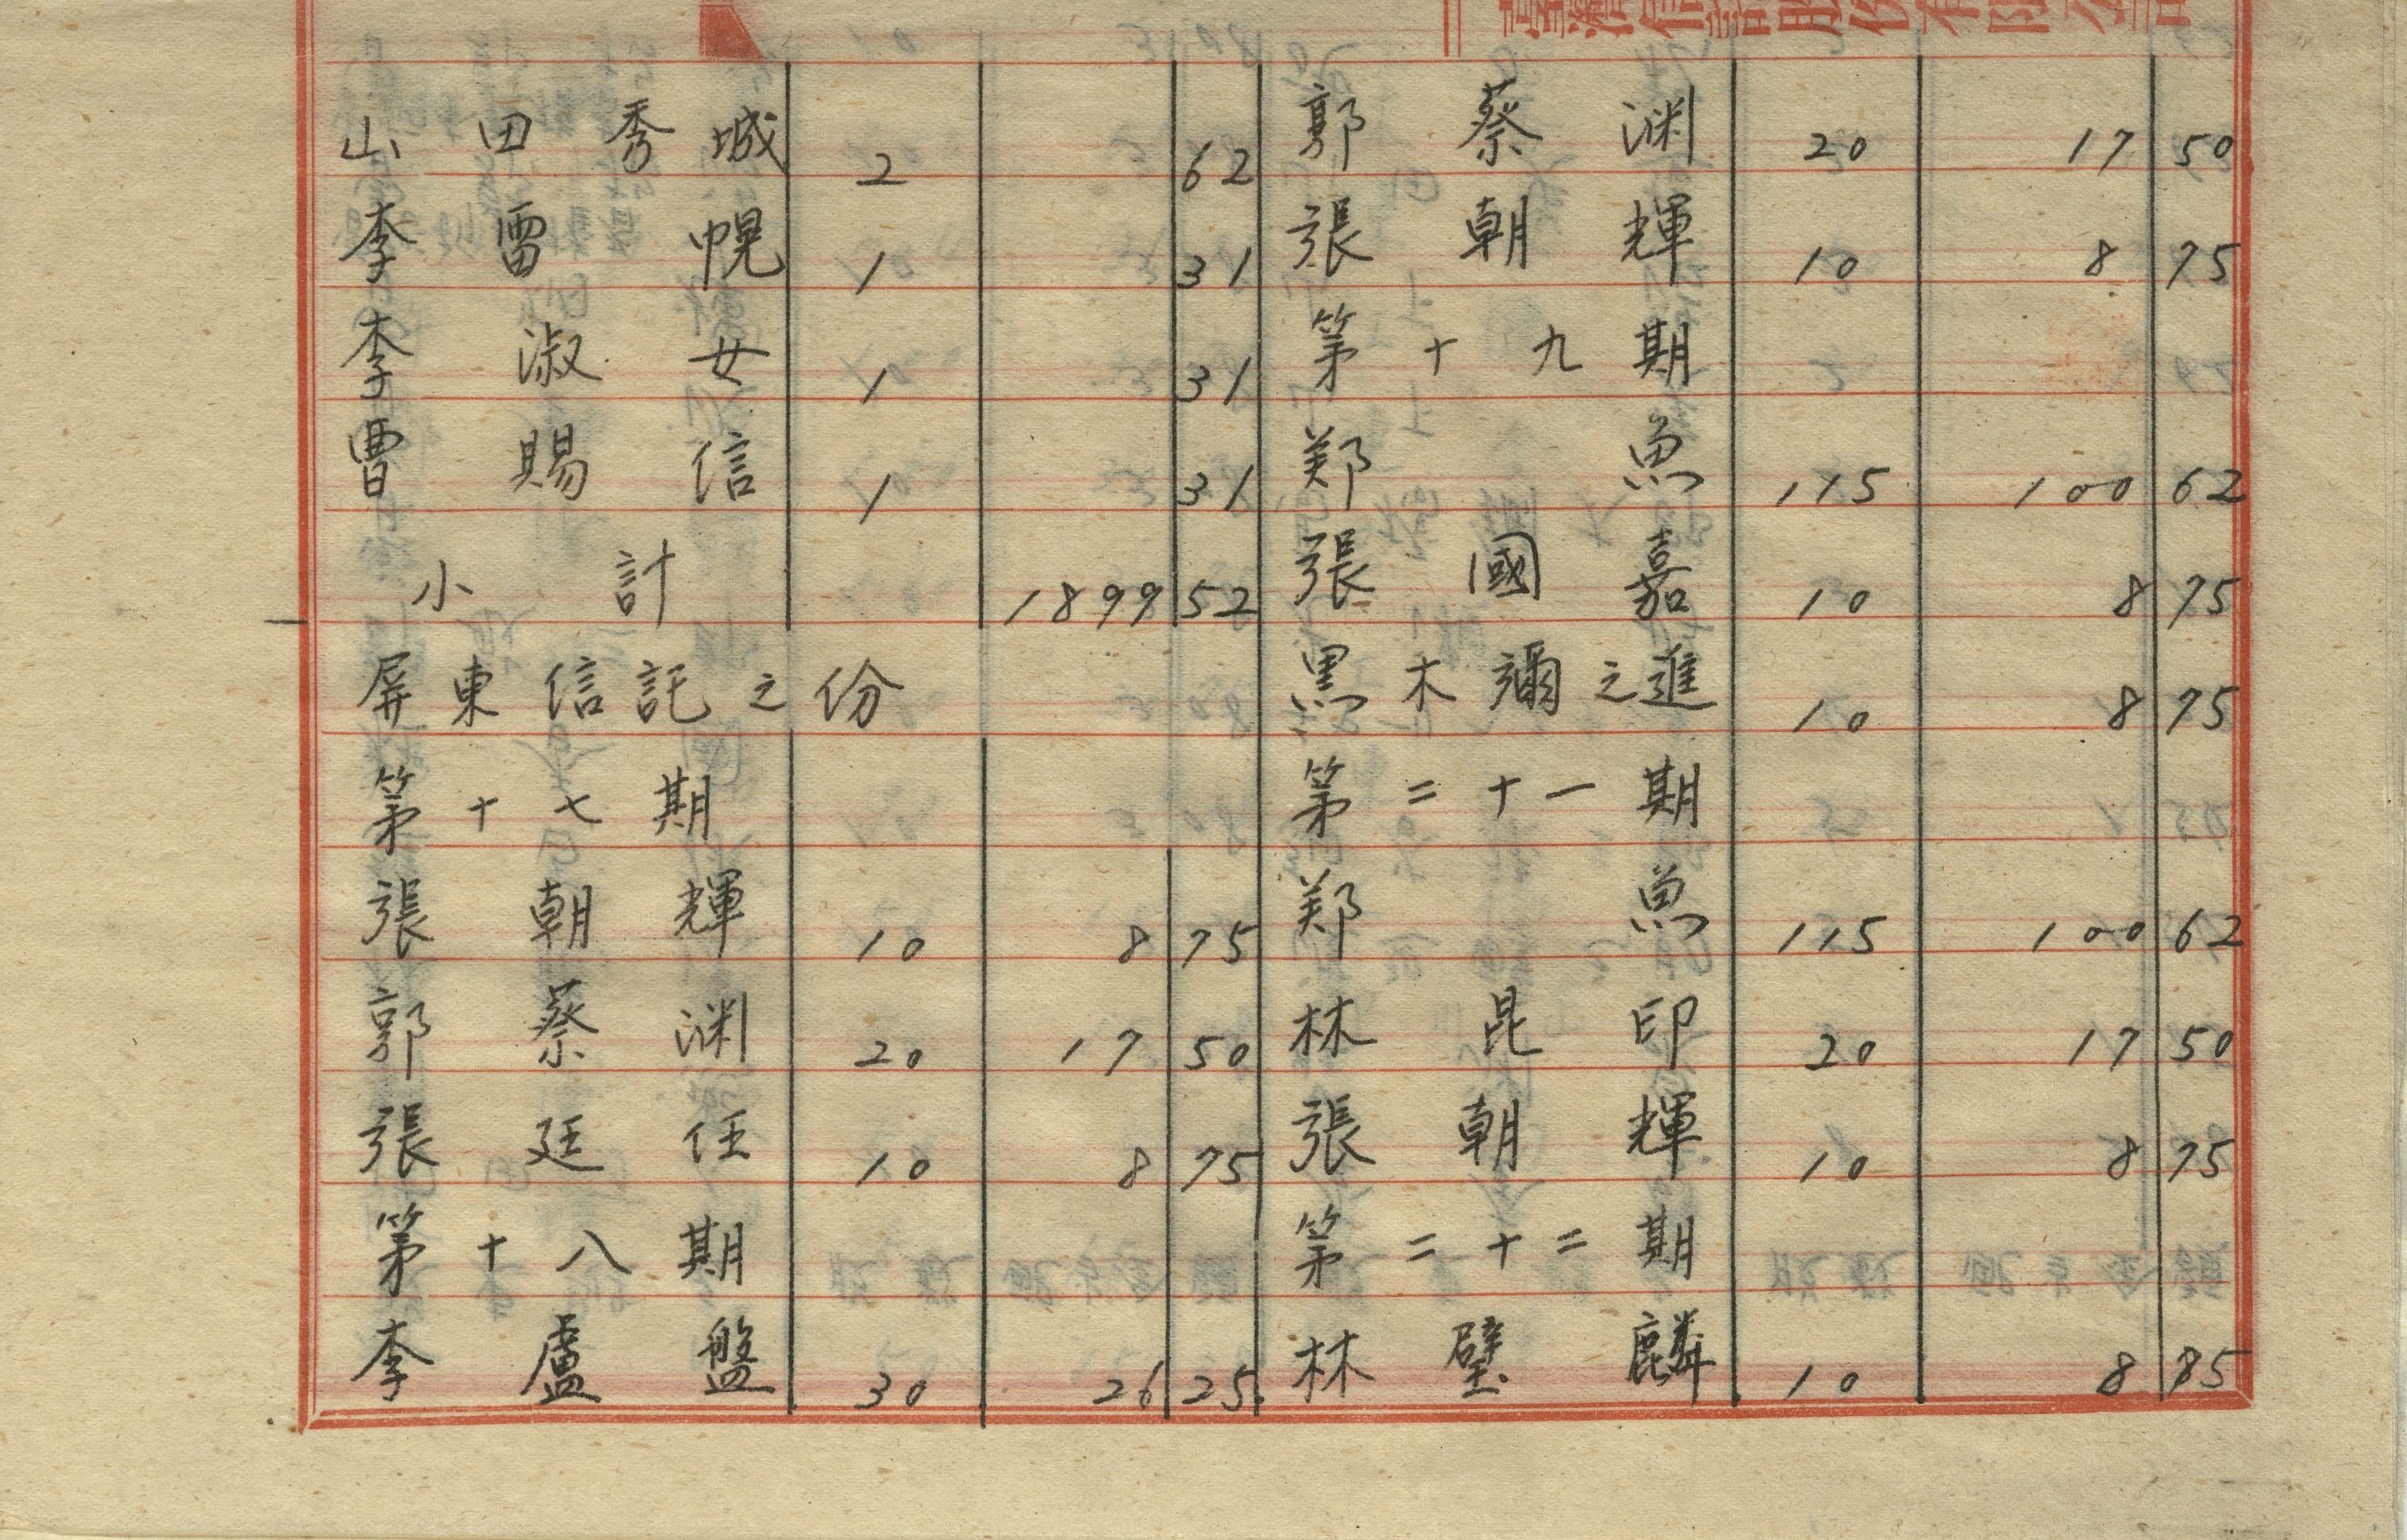 臺灣信託股份有限公司
山田秀城 2 62
李雷幌 1 31
李淑女 1 31
曹賜信 1 31
小計 1899 52
屏東信託之份
第十七期
張朝輝 10 8 75
郭蔡渊 20 17 50
張廷任 10 8 75
第十八期
李盧盤 30 26 25
郭蔡渊 20 17 50
張朝輝 10 8 75
第十九期
郑魚 115 100 62
張國嘉 10 8 75
黒木彌之進 10 8 75
第二十一期
郑魚 115 100 62
林昆印 20 17 50
張朝輝 10 8 75
第二十二期
林璧麟 10 8 75